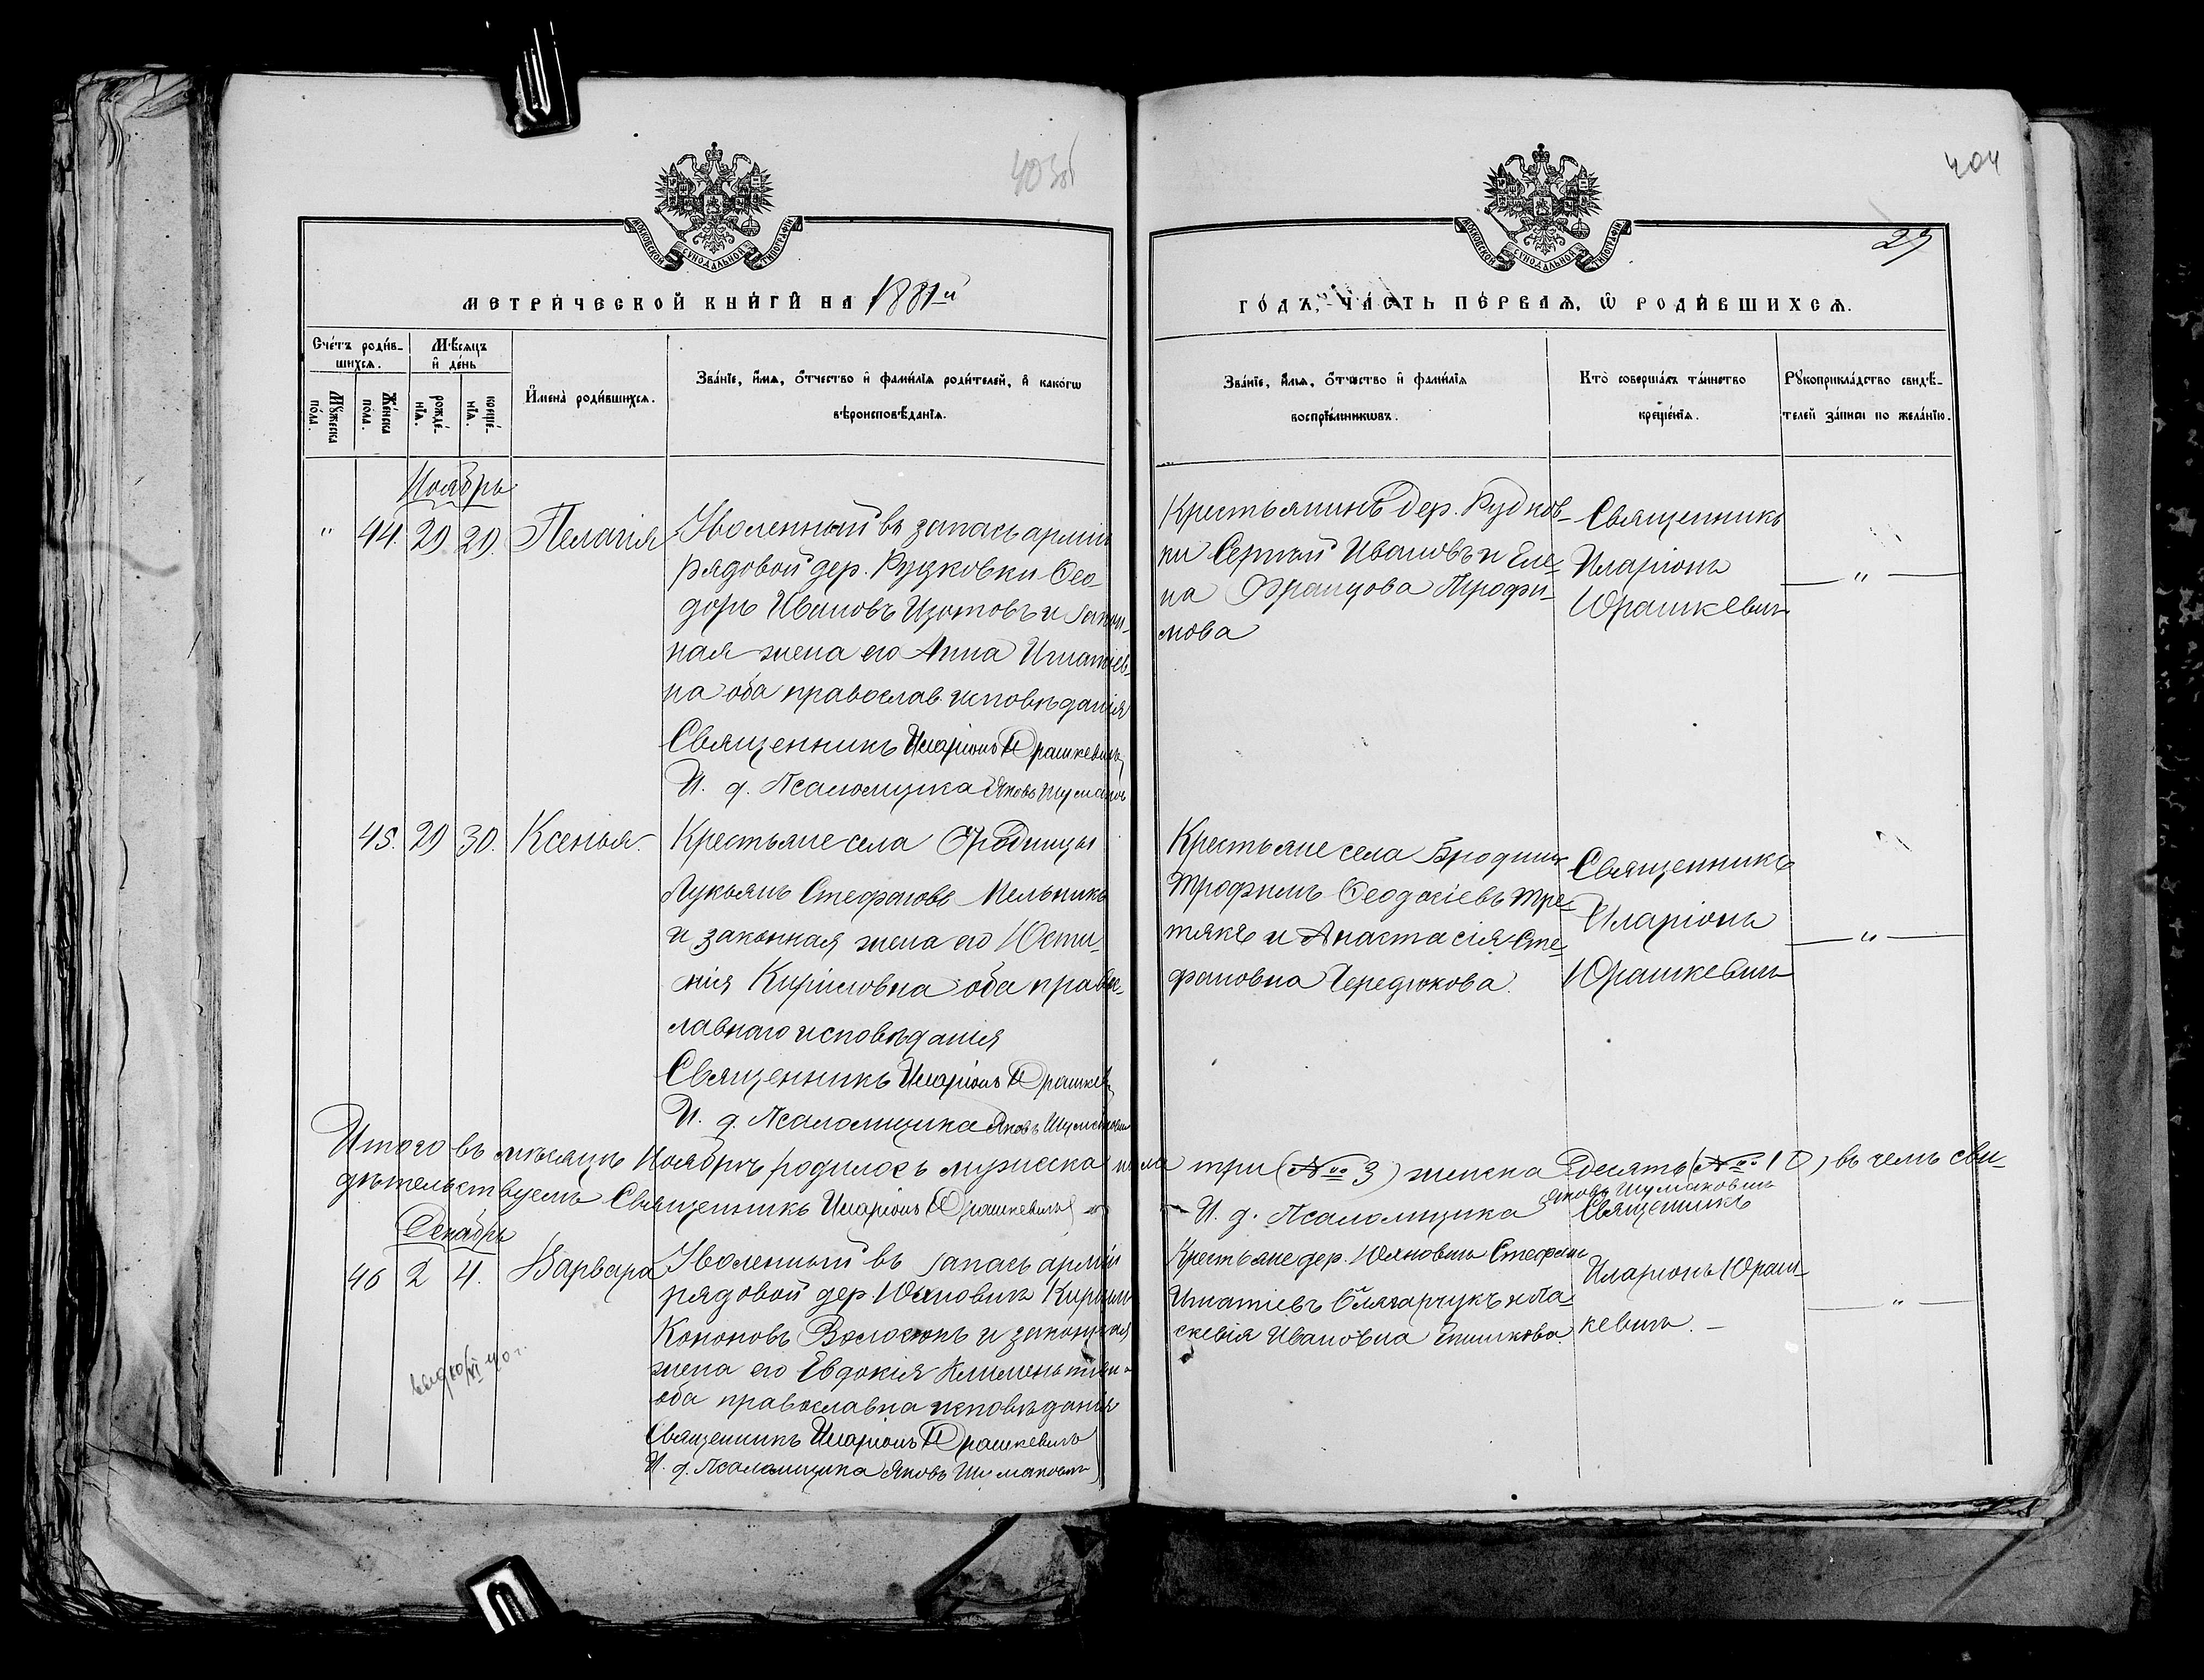 403об
404
29
МОСКОВСКОЙ СѴНОДАЛЬНОЙ ТИПОГРАФІИ
МОСКОВСКОЙ СѴНОДАЛЬНОЙ ТИПОГРАФІИ
МЕТРИЧЕСКОЙ КНИГИ НА 1881й
ГОДЪ, ЧАСТЬ ПЕРВАЯ, Ѡ РОДИВШИХСЯ.
Счетъ родив-
шихся.
Мѣсяцъ
и день
Мужеска пола.
Женска пола.
рожде-
нія.
креще-
нія.
Имена родившихся.
Званіе, имя, отчество и фамилія родителей, и какогѡ
вѣроисповѣданія.
Званіе, имя, отчество и фамилія
воспріемникѡвъ.
Кто совершалъ таинство
крещенія.
Рукоприкладство свидѣ-
телей записи по желанію.
Ноябрь
" 44. 29 29. Пелагія
Уволенный въ запасъ арміи
рядовой дер. Рудковки Ѳео-
доръ Ивановъ Изотовъ и закон-
ная жена его Анна Игнатіев-
на оба православ. исповѣданія
Священникъ Иларіонъ Юрашкевичъ
И. д. Псаломщика Яковъ Шумакович
Крестьянинъ дер. Рудков-
ки Сергѣй Ивановъ и Еле-
на Францова Трофи-
мова
Священникъ
Иларіонъ
Юрашкевич
— " —
45. 29 30. Ксенія.
Крестьяне села Бродницы
Лукьянъ Стефановъ Мельникъ
и законная жена его Юсти-
нія Кириловна оба правос-
лавнаго исповѣданія
Священникъ Иларіонъ Юрашкев.
И. д. Псаломщика Яковъ Шумакович
Крестьяне села Бродниц
Трофимъ Ѳеодосіевъ Тре-
тякъ и Анастасія Сте-
фановна Чередюкова.
Священникъ
Иларіонъ
Юрашкевич
— " —
Итого въ мѣсяцѣ Ноябрѣ родилось мужеска пола три (№ 3) женска десять (№ 10), въ чемъ сви-
дѣтельствуемъ Священникъ Иларіонъ Юрашкевичъ
И. д. Псаломщика Яковъ Шумаковичъ
Декабрь
46 2 4. Варвара
Уволенный въ запасъ арміи
рядовой дер. Юхновичъ Кирилъ
Кононовъ Волосюкъ и законная
жена его Евдокія Климентьевн.
оба православна исповѣданія
Священникъ Иларіонъ Юрашкевичъ
И. д. Псаломщика Яковъ Шумаковичъ
Крестьяне дер. Юхновичъ Стефанъ
Игнатіевъ и Па-
скевія Ивановна
Священникъ
Иларіонъ Юраш-
кевичъ. —
— " —